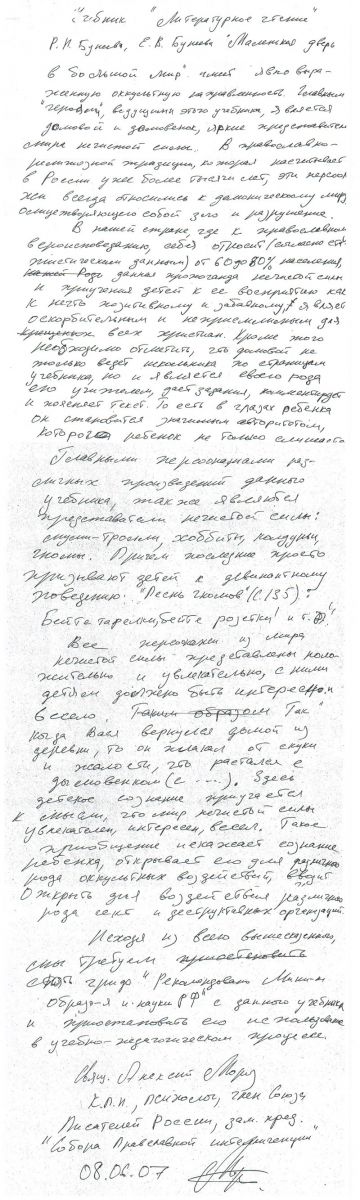 Учебник "Литературное чтение"
Р.Н. Бунеева, Е.В. Бунева "Маленькая дверь
в большой мир" имеет явно выра-
женную оккультную направленность. Главным
"героем", ведущим этого учебника, является
домовой и домовенок, яркие представители
мира нечистой силы. В православно-
религиозной традиции, которая насчитывает
в России уже более тысячи лет, эти персона
жи всегда относились к демоническому миру,
осуществляющего собой зло и разрушение.
В нашей стране, где к православному
вероисповеданию, себя относит (согласно ста-
тистическим данным) от 60 до 80% населения,
данная пропаганда нечистой силы
и приучения детей к ее восприятию как
к нечто позитивному и забавному, является
оскорбительным и неприемлемым для
всех христиан. Кроме этого
необходимо отметить, что домовой не
только ведет школьника по страницам
учебника, но и является своего рода
его учителем, дает задания, комментирует
и поясняет текст. То есть в глазах ребенка
он становится значимым авторитетом,
которого ребенок не только слышит
Главными персонажами раз-
личных произведений данного
учебника, также являются
представители нечистой силы:
снусм-троли, хоббиты, колдуны,
гномы. Причем последние просто
призывают детей к девиантному
поведению. "Песнь гномов" (с.135):
Бейте тарелки, бейте розетки! и т.д."
Все персонажи из мира
нечистой силы представлены поло-
жительно и увлекательно, с ними
детям должно быть интересно и
весело. Таким образом Так
когда Вася вернулся домой из
деревни, то он плакал от скуки
и жалости, что расстался с
домовенком (с ....). Здесь
детское сознание приучается
к мысли, что мир нечистой силы
увлекателен, интересен, весел. Такое
приобщение искажает сознание
ребенка, открывает его для различного
рода оккультных воздействий,
открыть для воздействия различного
рода сект и деструктивных организаций.
Исходя из всего вышесказанного,
мы требуем приостановить
снять гриф "Рекомендовано Мин-м
образ-я и науки РФ" с данного учебника
и приостановить его использование
в учебно-педагогическом процессе.
Свящ. Алексий Мороз
К.п.н., психолог, член Союза
Писателей России, зам. пред.
"Собора Православной интеллигенции"
08.06.07